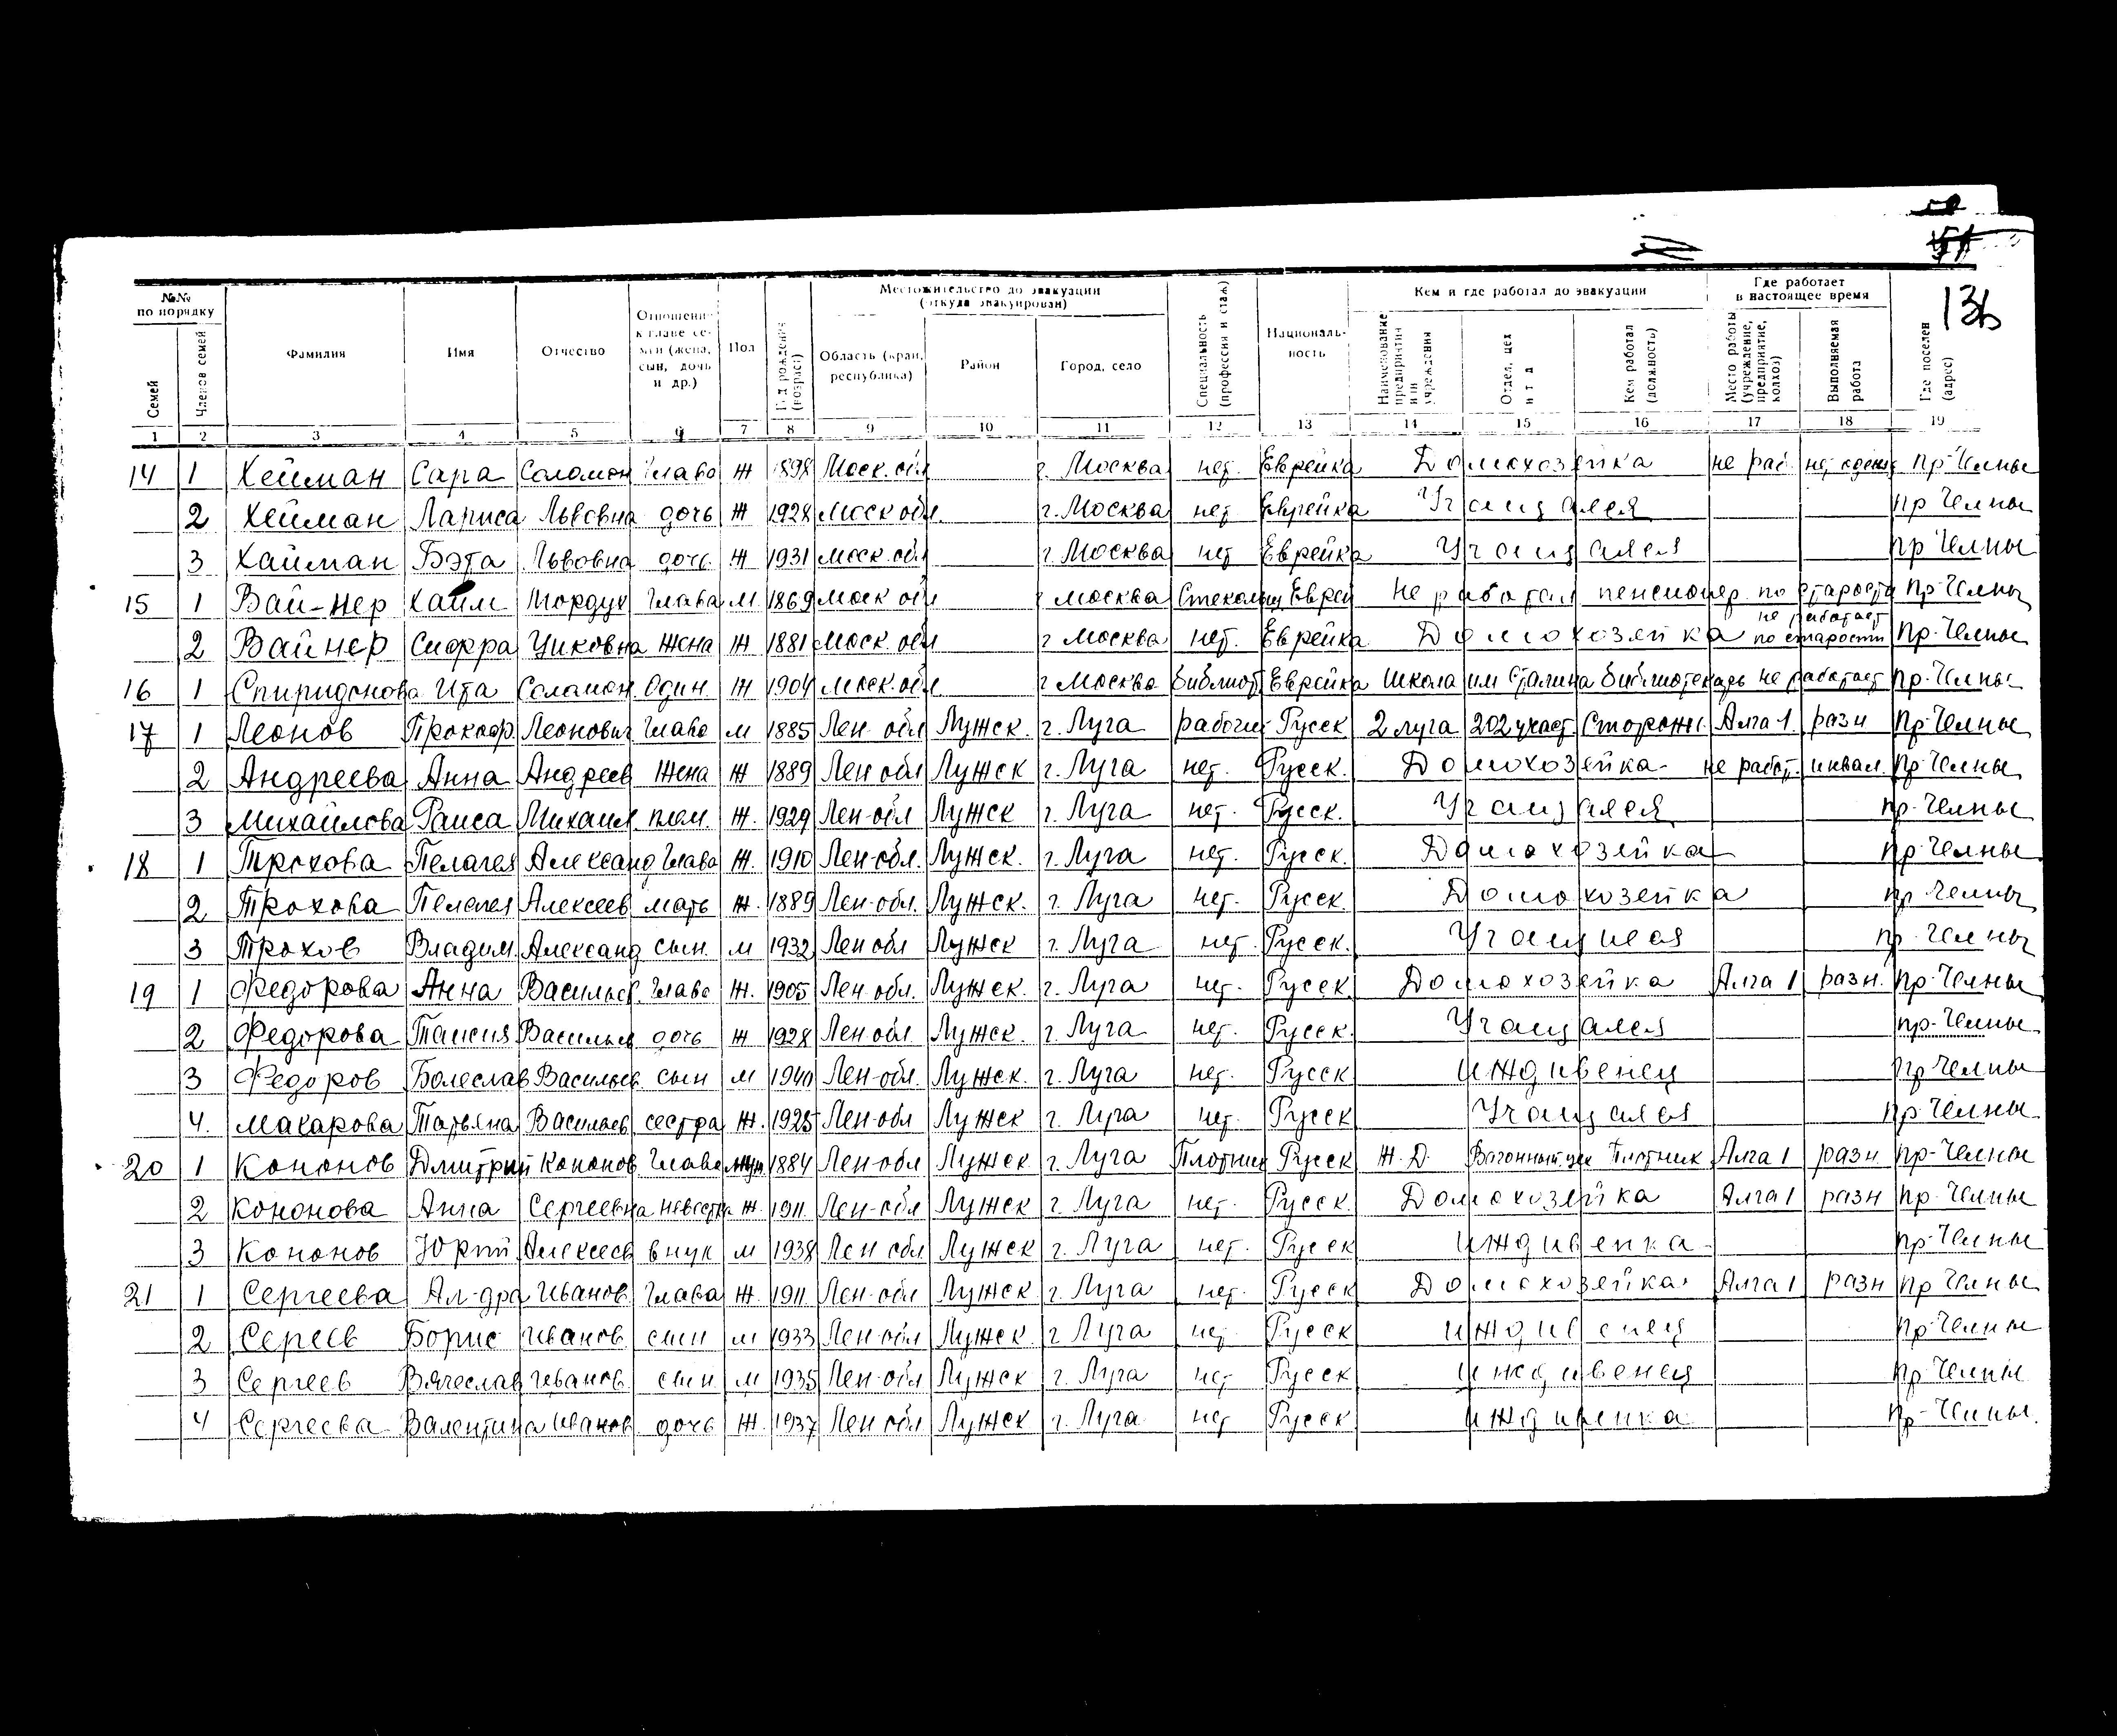 136
№№ по порядку
Семей
Членов семей
Фамилия
Имя
Отчество
Отношение к главе семьи (жена, сын, дочь и др.)
Пол
Год рождения (возраст)
Местожительство до эвакуации (откуда эвакуирован)
Область (край, республика)
Район
Город, село
Специальность (профессия и стаж)
Националь-ность
Кем и где работал до эвакуации
Наименование предприятия или учреждения
Отдел, цех и т д
Кем работал (должность)
Где работает в настоящее время
Место работы (учреждение, предприятие, колхоз)
Выполняемая работа
Где поселен (адрес)
1 2 3 4 5 6 7 8 9 10 11 12 13 14 15 16 17 18 19
14 1 Хейман Сара Соломон Глава Ж 1898 Моск. обл г. Москва нет. Еврейка Домохозяйка не раб. нет Пр-Челны
2 Хейман Лариса Львовна дочь Ж 1928 Моск обл. г. Москва нет Еврейка Учащаяся пр Челны
3 Хайман Бэта Львовна дочь Ж 1931 Моск. обл г. Москва нет Еврейка Учащаяся пр Челны
15 1 Вай-нер Хаим Мордух Глава М. 1869 Моск обл г Москва Стекольщ Еврей Не работал пенсионер по старости Пр-Челны
2 Вайнер Сифра Ициковна Жена Ж 1881 Моск. обл г Москва нет. Еврейка Домохозяйка не работает по старости Пр-Челны
16 1 Спиридонова Ита Соломон. Один. Ж 1904 Моск. обл г Москва библиот Еврейка Школа им Сталина библиотекарь не работает Пр-Челны
17 1 Леонов Прокоф. Леонович Глава м 1885 Лен. обл Лужск. г. Луга рабочий Русск 2 луга 202 участ. Сторожь. Алга 1. разн Пр-Челны
2 Андреева Анна Андреев Жена Ж 1889 Лен обл Лужск г. Луга нет. Русск. Домохозейка не работ. инвал. Пр-Челны
3 Михайлова Раиса Михаил. плем. Ж. 1929 Лен-обл Лужск г. Луга нет. Русск. Учащаяся пр-Челны
18 1 Трохова Пелагея Александ Глава Ж. 1910 Лен-обл. Лужск. г. Луга нет. Русск. Домохозейка пр-Челны
2 Трохова Пелагея Алексеев мать Ж. 1889 Лен-обл. Лужск. г. Луга нет. Русск. Домохозейка пр-Челны
3 Трохов Владим. Александ сын. м 1932 Лен обл Лужск г. Луга нет. Русск. Учащиеся пр-Челны
19 1 Федорова Анна Васильев. Глава Ж. 1905 Лен обл. Лужск. г. Луга нет. Русск Домохозейка Алга 1 разн. Пр-Челны
2 Федорова Таисия Васильев дочь Ж 1928 Лен обл Лужск. г. Луга нет. Русск. Учащаяся пр-Челны
3 Федоров Болеслав Васильев. сын м 1940 Лен-обл. Лужск. г. Луга нет. Русск иждивенец Пр Челны
4. Макарова Татьяна Васильев. сестра Ж. 1925 Лен-обл Лужск г. Луга нет. Русск Учащаяся Пр-Челны
20 1 Кононов Дмитрий Кононов. Глава муж. 1884 Лен-обл Лужск г. Луга Плотник Русск Ж. Д. Вагонный цех Плотник Алга 1 разн Пр-Челны
2 Кононова Анна Сергеевна невестка Ж. 1911. Лен-обл Лужск г. Луга нет. Русск. Домохозейка Алга 1 разн Пр-Челны
3 Кононов Юрий Алексеев внук м 1938 Лен обл Лужск г. Луга нет. Русск иждивенка Пр-Челны
21 1 Сергеева Ал-дра Иванов. Глава Ж. 1911. Лен-обл Лужск г. Луга нет. Русск Домохозейка Алга 1 разн Пр Челны
2 Сереев Борис Иванов. сын м 1933 Лен-обл Лужск г. Луга нет. Русск иждивенец Пр-Челны
3 Сергеев Вячеслав Иванов. сын м 1935 Лен-обл Лужск г. Луга нет Русск иждивенец Пр-Челны
4 Сергеева Валентина Иванов дочь Ж. 1937 Лен обл Лужск г. Луга нет Русск иждивенка Пр-Челны.